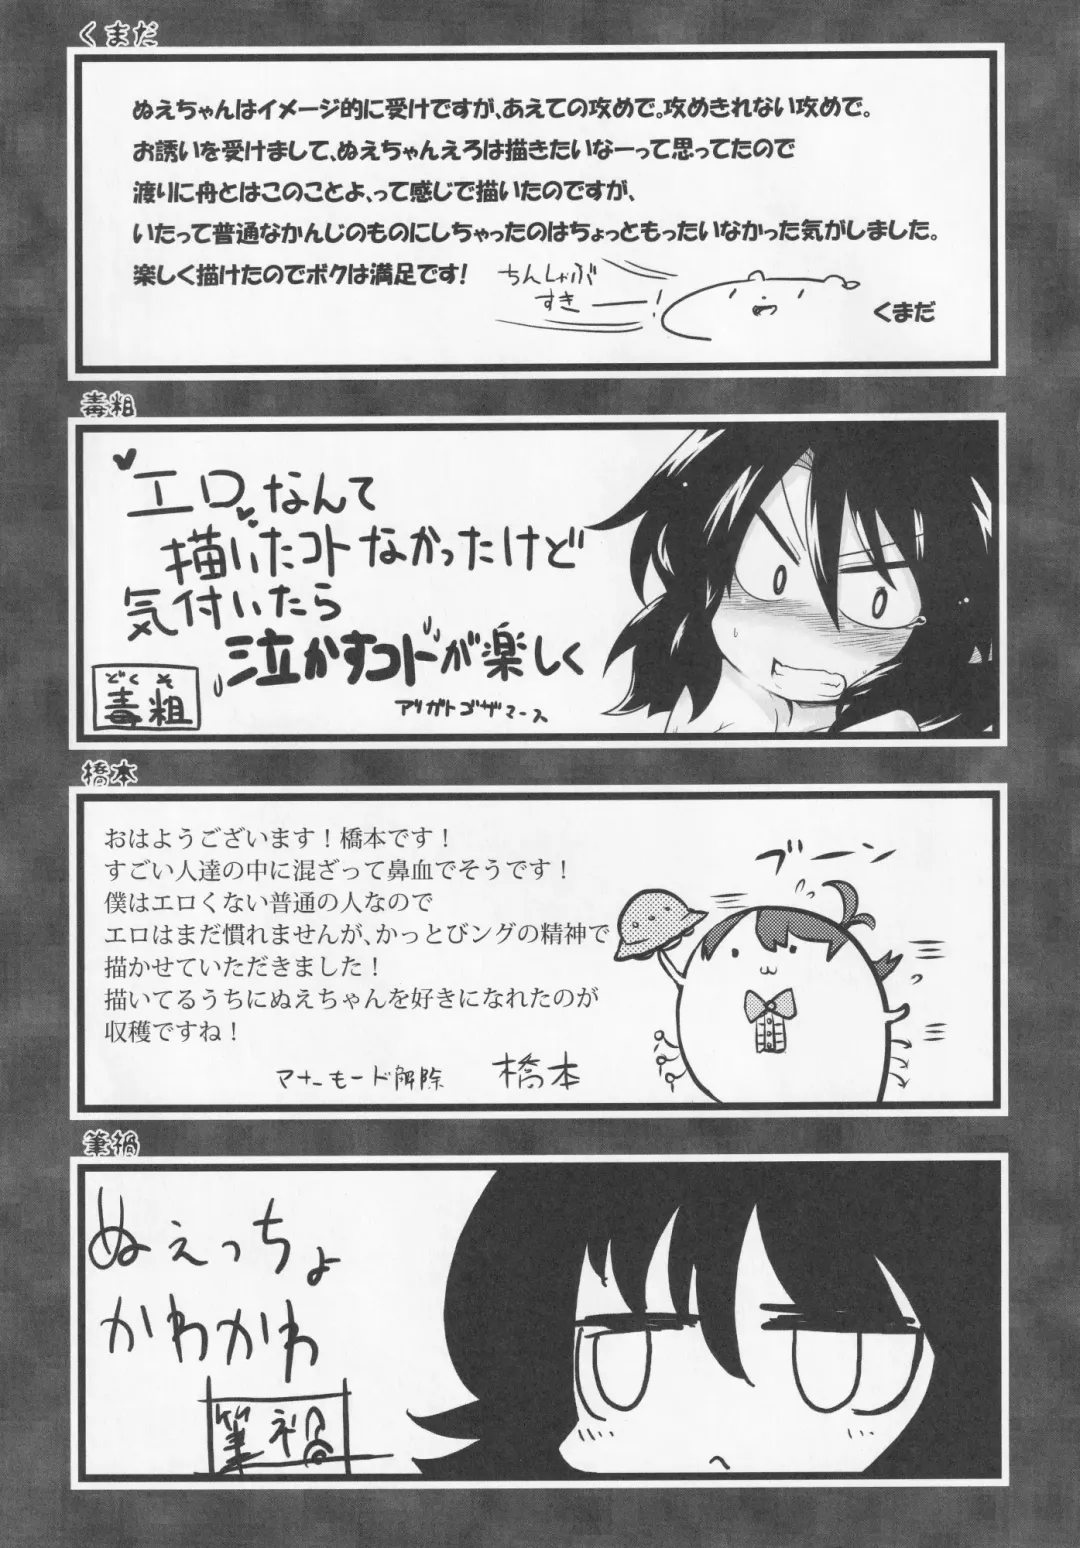 くまだ
ぬえちゃんはイメージ的に受けですが、あえての攻めで。攻めきれない攻めで。
お誘いを受けまして、ぬえちゃんえろは描きたいなーって思ってたので
渡りに舟とはこのことよ、って感じで描いたのですが、
いたって普通なかんじのものにしちゃったのはちょっともったいなかった気がしました。
楽しく描けたのでボクは満足です!
ちんしゃぶ
すき
くまだ
毒粗
エロなんて
描いたコトなかったけど
気付いたら
泣かすコトが楽しく
アリガトゴザマース
どくそ
毒粗
橋本
おはようございます!橋本です!
すごい人達の中に混ざって鼻血でそうです!
僕はエロくない普通の人なので
エロはまだ慣れませんが、かっとびングの精神で
描かせていただきました!
描いてるうちにぬえちゃんを好きになれたのが
収穫ですね!
マナーモード解除
橋本
ブーン
筆禍
ぬえっちょ
かわかわ
筆禍